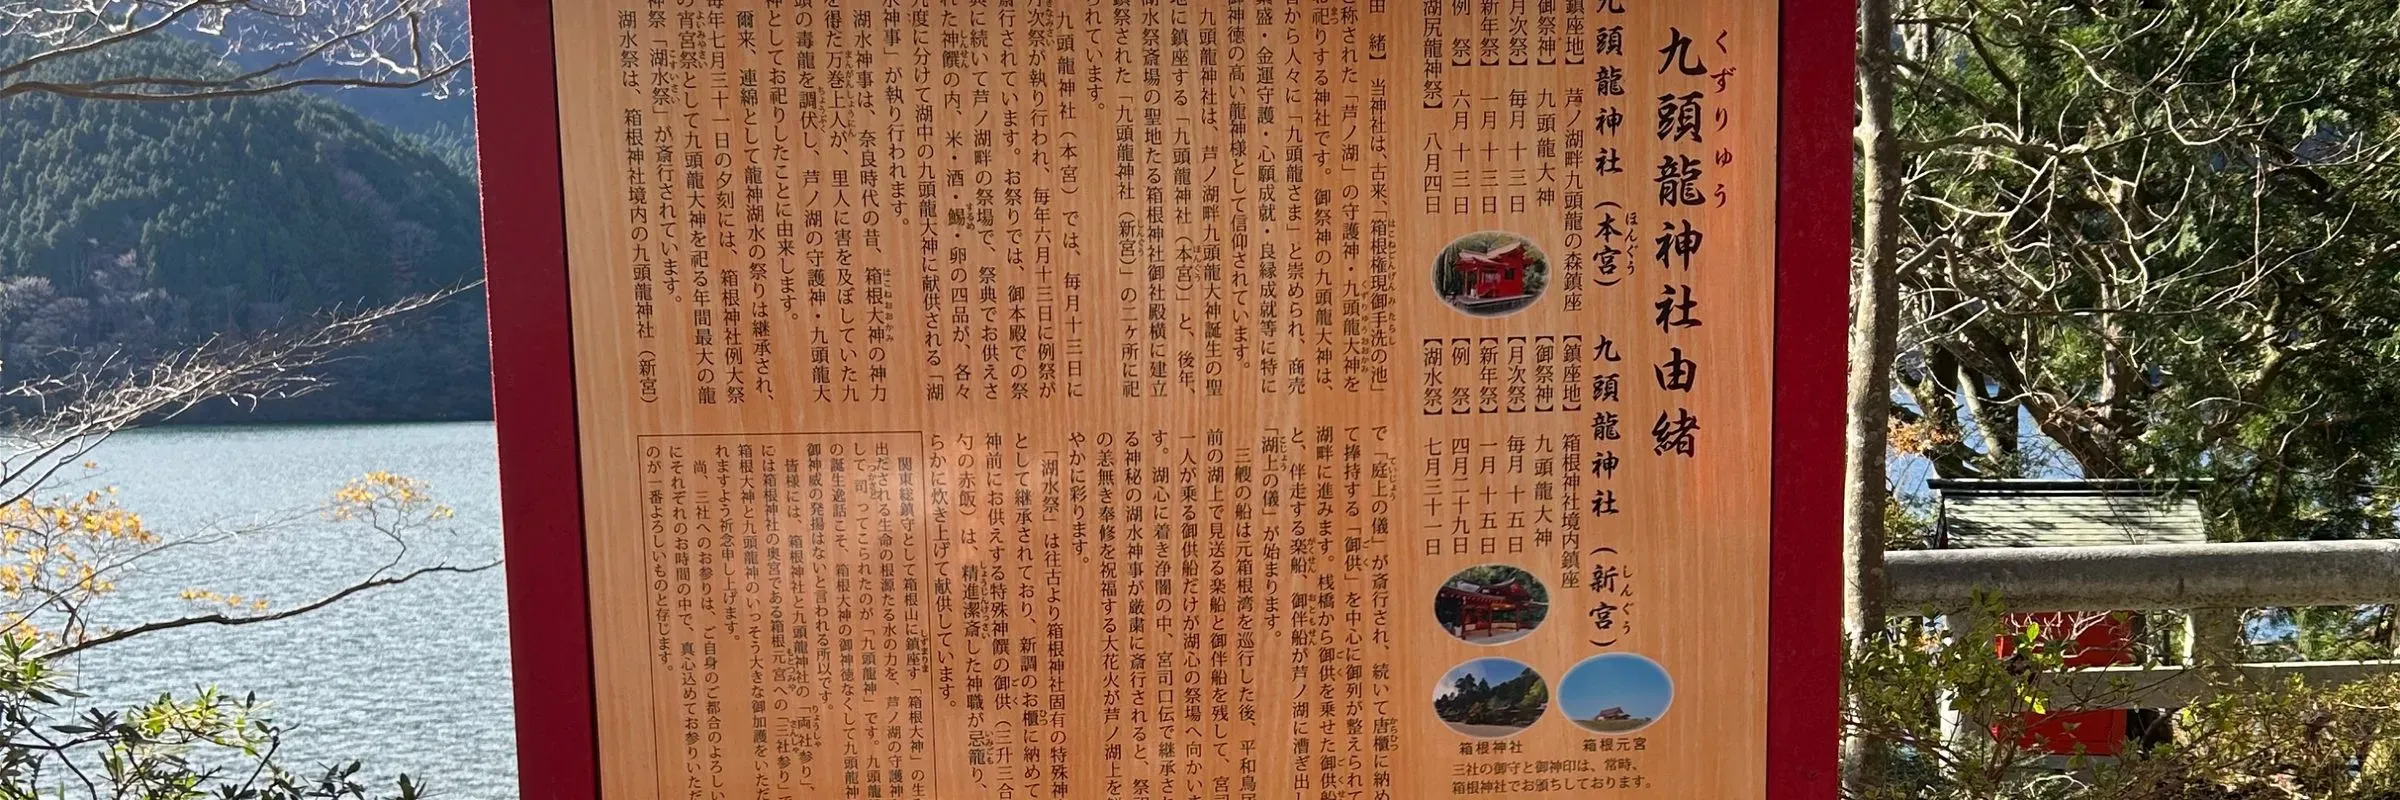 くずりゅう
九頭龍神社由緒
九頭龍神社（本宮）
ほんぐう
鎮座地】 芦ノ湖畔九頭龍の森鎮座
御祭神】 九頭龍大神
月次祭】 毎月十三日
新年祭】 一月十三日
例 祭】 六月十三日
湖尻龍神祭】 八月四日
九頭龍神社（新宮）
しんぐう
【鎮座地】 箱根神社境内鎮座
【御祭神】 九頭龍大神
【月次祭】 毎月十五日
【新年祭】 一月十五日
【例 祭】 四月二十九日
【湖水祭】 七月三十一日
箱根神社
箱根元宮
三社の御守と御神印は、常時、
箱根神社でお頒ちしております。
由 緒】 当神社は、古来、「箱根権現御手洗の池」
はこねごんげんみたらし
と称された「芦ノ湖」の守護神・九頭龍大神を
くずりゅうおおかみ
お祀りする神社です。御祭神の九頭龍大神は、
まつ
昔から人々に「九頭龍さま」と崇められ、商売
繁盛・金運守護・心願成就・良縁成就等に特に
御神徳の高い龍神様として信仰されています。
九頭龍神社は、芦ノ湖畔九頭龍大神誕生の聖
地に鎮座する「九頭龍神社（本宮）」と、後年、
ほんぐう
湖水祭斎場の聖地たる箱根神社御社殿横に建立
鎮祭された「九頭龍神社（新宮）」の二ヶ所に祀
しんぐう
られています。
九頭龍神社（本宮）では、毎月十三日に
月次祭が執り行われ、毎年六月十三日に例祭が
斎行されています。お祭りでは、御本殿での祭
典に続いて芦ノ湖畔の祭場で、祭典でお供えさ
れた神饌の内、米・酒・鯣・卵の四品が、各々
しんせん
するめ
九度に分けて湖中の九頭龍大神に献供される「湖
水神事」が執り行われます。
湖水神事は、奈良時代の昔、箱根大神の神力
はこねおおかみ
を得た万巻上人が、里人に害を及ぼしていた九
まんがんしょうにん
頭の毒龍を調伏し、芦ノ湖の守護神・九頭龍大
ちょうぶく
神としてお祀りしたことに由来します。
爾来、連綿として龍神湖水の祭りは継承され、
毎年七月三十一日の夕刻には、箱根神社例大祭
の宵宮祭として九頭龍大神を祀る年間最大の龍
よいみやさい
神祭「湖水祭」が斎行されています。
こすいさい
湖水祭は、箱根神社境内の九頭龍神社（新宮）
で「庭上の儀」が斎行され、続いて唐櫃に納め
ていじょう
からひつ
て捧持する「御供」を中心に御列が整えられて
ごく
湖畔に進みます。桟橋から御供を乗せた御供船
ごく
と、伴走する楽船、御伴船が芦ノ湖に漕ぎ出し
がくせん
おともせん
「湖上の儀」が始まります。
こじょう
三艘の船は元箱根湾を巡行した後、平和鳥居
前の湖上で見送る楽船と御伴船を残して、宮司
一人が乗る御供船だけが湖心の祭場へ向かいま
す。湖心に着き浄闇の中、宮司口伝で継承され
る神秘の湖水神事が厳粛に斎行されると、祭
の恙無き奉修を祝福する大花火が芦ノ湖上を
やかに彩ります。
「湖水祭」は往古より箱根神社固有の特殊神
として継承されており、新調のお櫃に納めて
ひつ
神前にお供えする特殊神饌の御供（三升三合
ごく
勺の赤飯）は、精進潔斎した神職が忌籠り、
しょうじんけっさい
いみごも
らかに炊き上げて献供しています。
関東総鎮守として箱根山に鎮座す「箱根大神」の生
出だされる生命の根源たる水の力を、芦ノ湖の守護神
して司ってこられたのが「九頭龍神」です。九頭龍
つかさど
の誕生逸話こそ、箱根大神の御神徳なくして九頭龍神
御神威の発揚はないと言われる所以です。
皆様には、箱根神社と九頭龍神社の「両社参り」、
りょうしゃ
には箱根神社の奥宮である箱根元宮への「三社参り」で
もとつみや
さんしゃ
箱根大神と九頭龍神のいっそう大きな御加護をいただ
れますよう祈念申し上げます。
尚、三社へのお参りは、ご自身のご都合のよろしい
にそれぞれのお時間の中で、真心込めてお参りいただ
のが一番よろしいものと存じます。